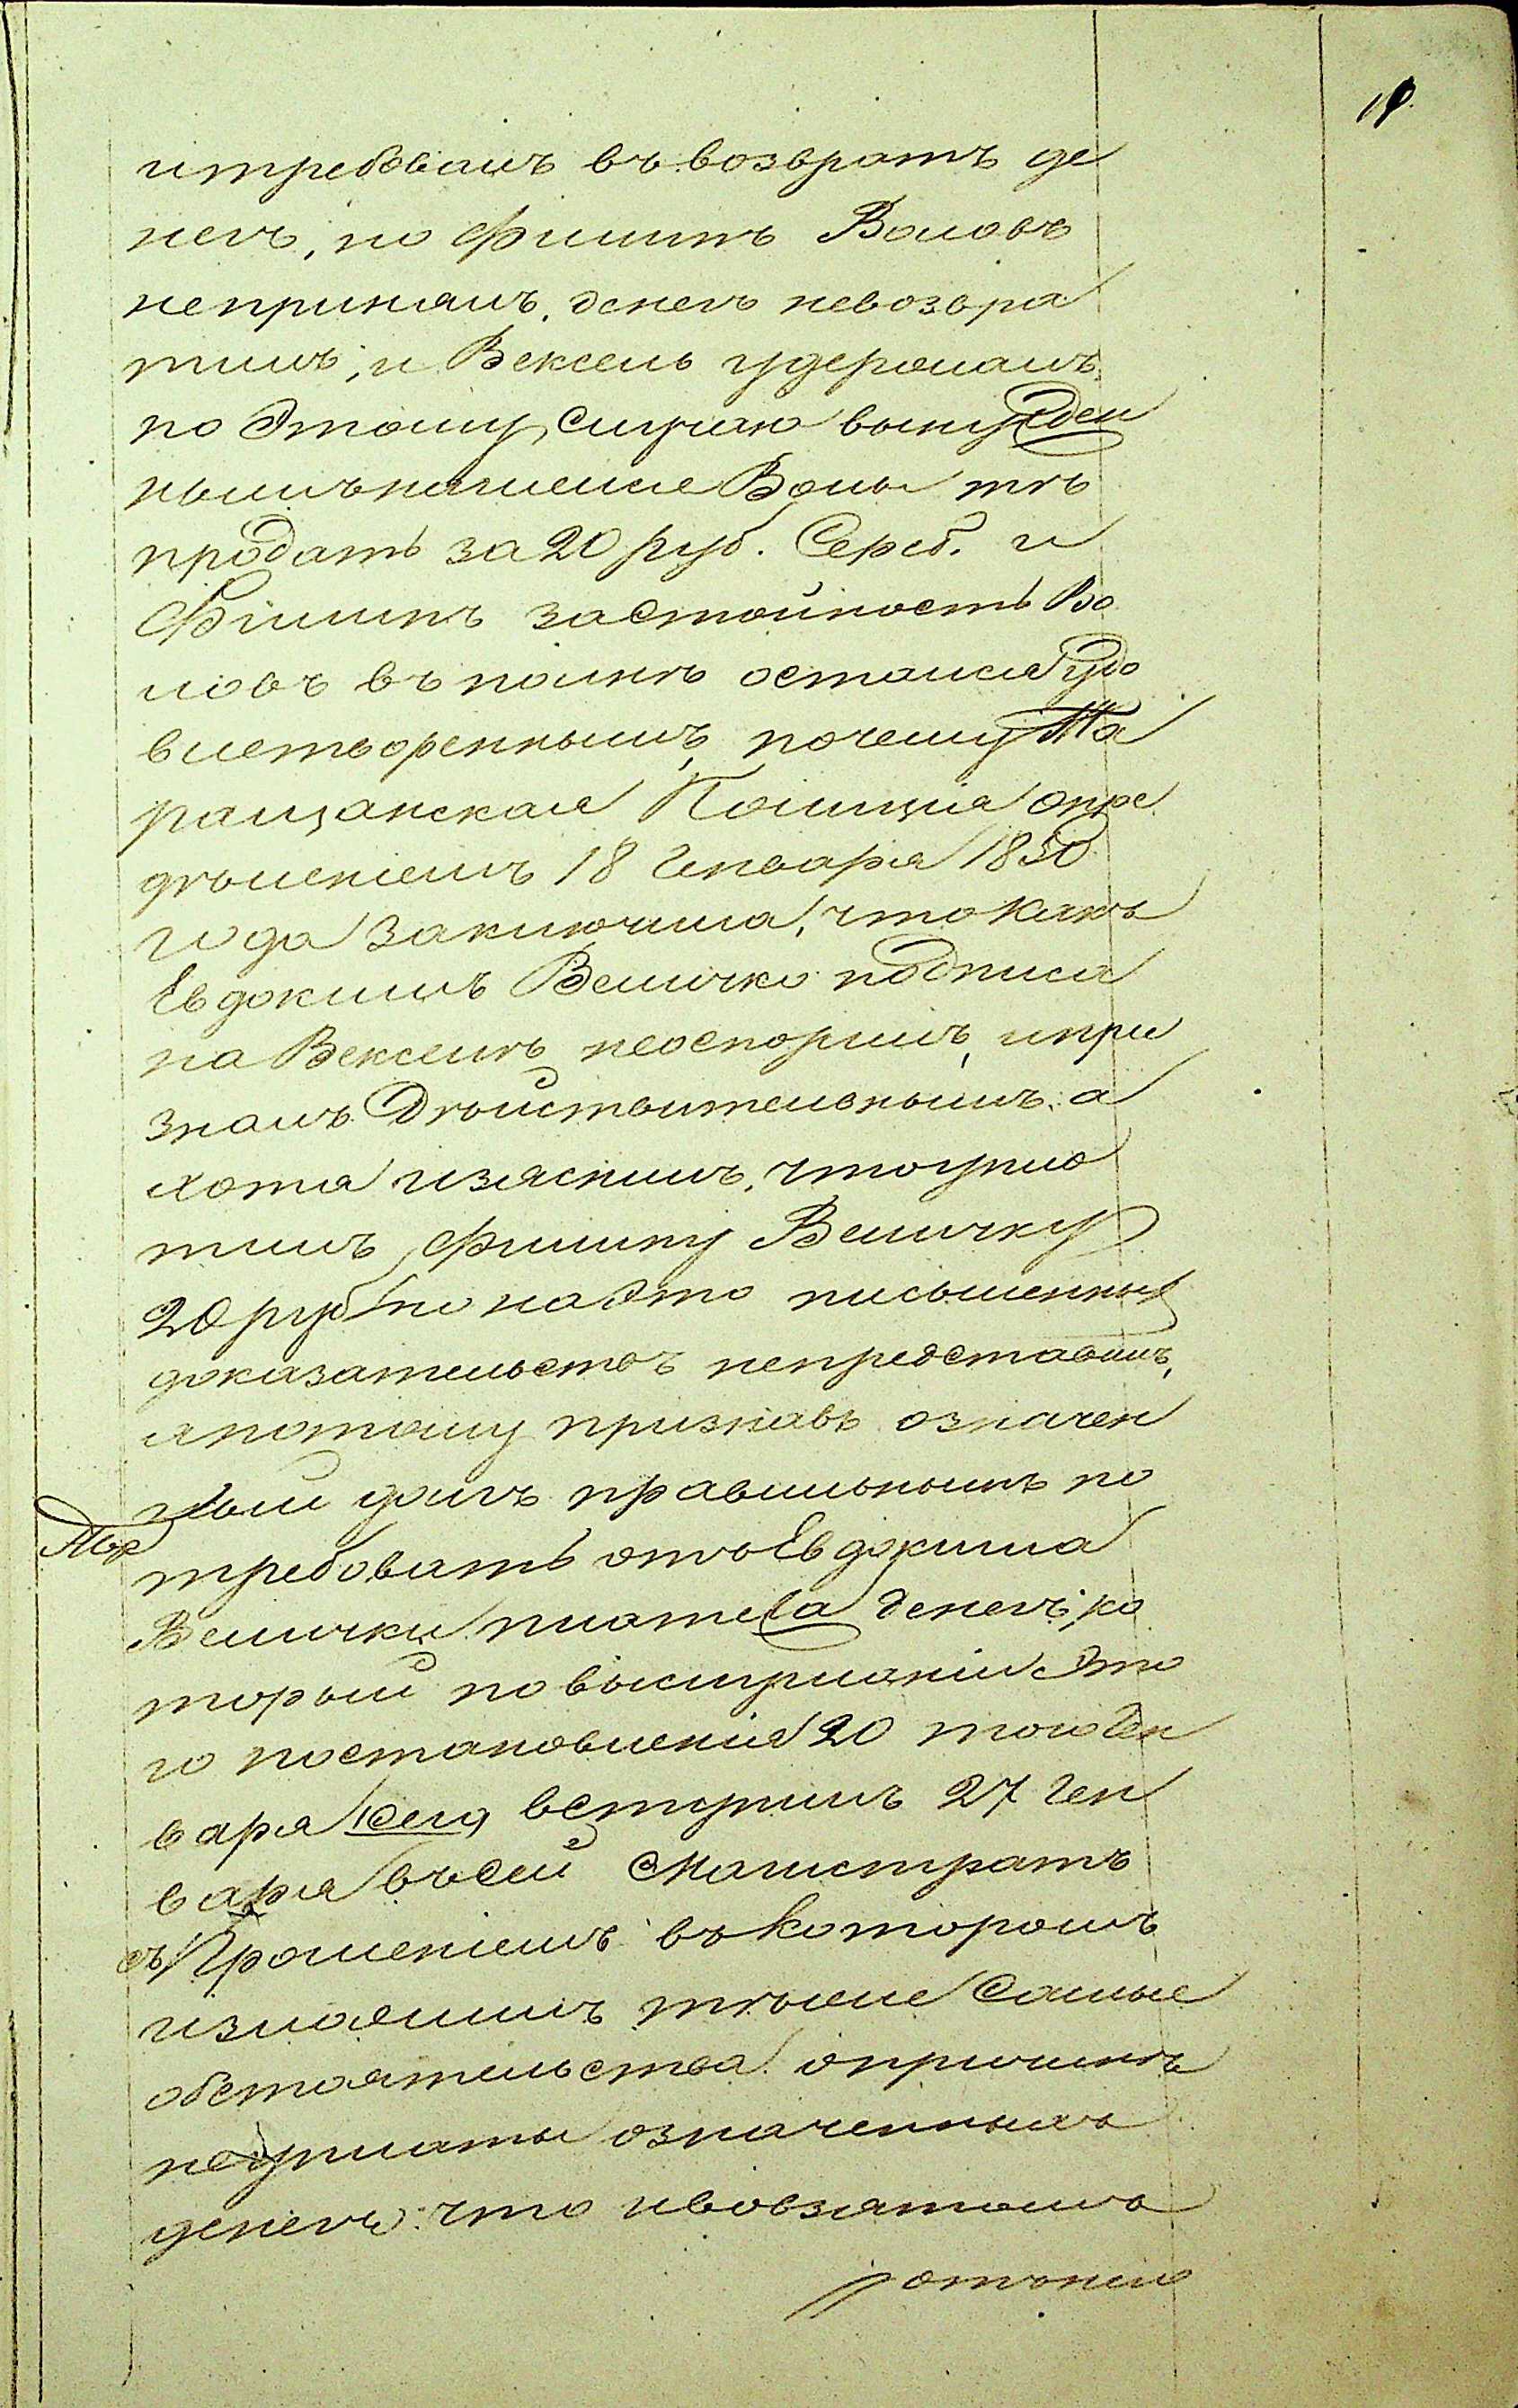 итребовалъ въ возвратъ де
негъ, но Филипъ Воловъ
непринялъ, денегъ невозвра
тилъ, и Вексель удержалъ,
по Этому Случаю вынужден
нымъ нашелся Волы тѣ
продать за 20 руб. Сереб. и
Филипъ за Стоимость Во
ловъ въ полнѣ остался удо
влетвореннымъ, почему Та
ращанская Полиція опре
дѣленіемъ 18 Генваря 1850
года заключила, что какъ
Евдокимъ Величко подписа
на Векселѣ неоспорилъ, и при
зналъ Дѣйствительнымъ, а
хотя изяснилъ, что упла
тилъ Филипу Величку
20 руб. но на это письменныхъ
доказательствъ непредставилъ,
а потому признавъ означен
ный долгъ правильнымъ по
требовать отъ Евдокима
Велички платежа денегъ, ко
торый по выслушаніи Это
го постановленія 20 того Ген
варя вступилъ 27 Ген
варя въ Сей Магистратъ
съ Прошеніемъ въ которомъ
изъяснилъ тѣже Самые
обстоятельства о причинѣ
неуплаты означенныхъ
денегъ что и во взятомъ
отъ него